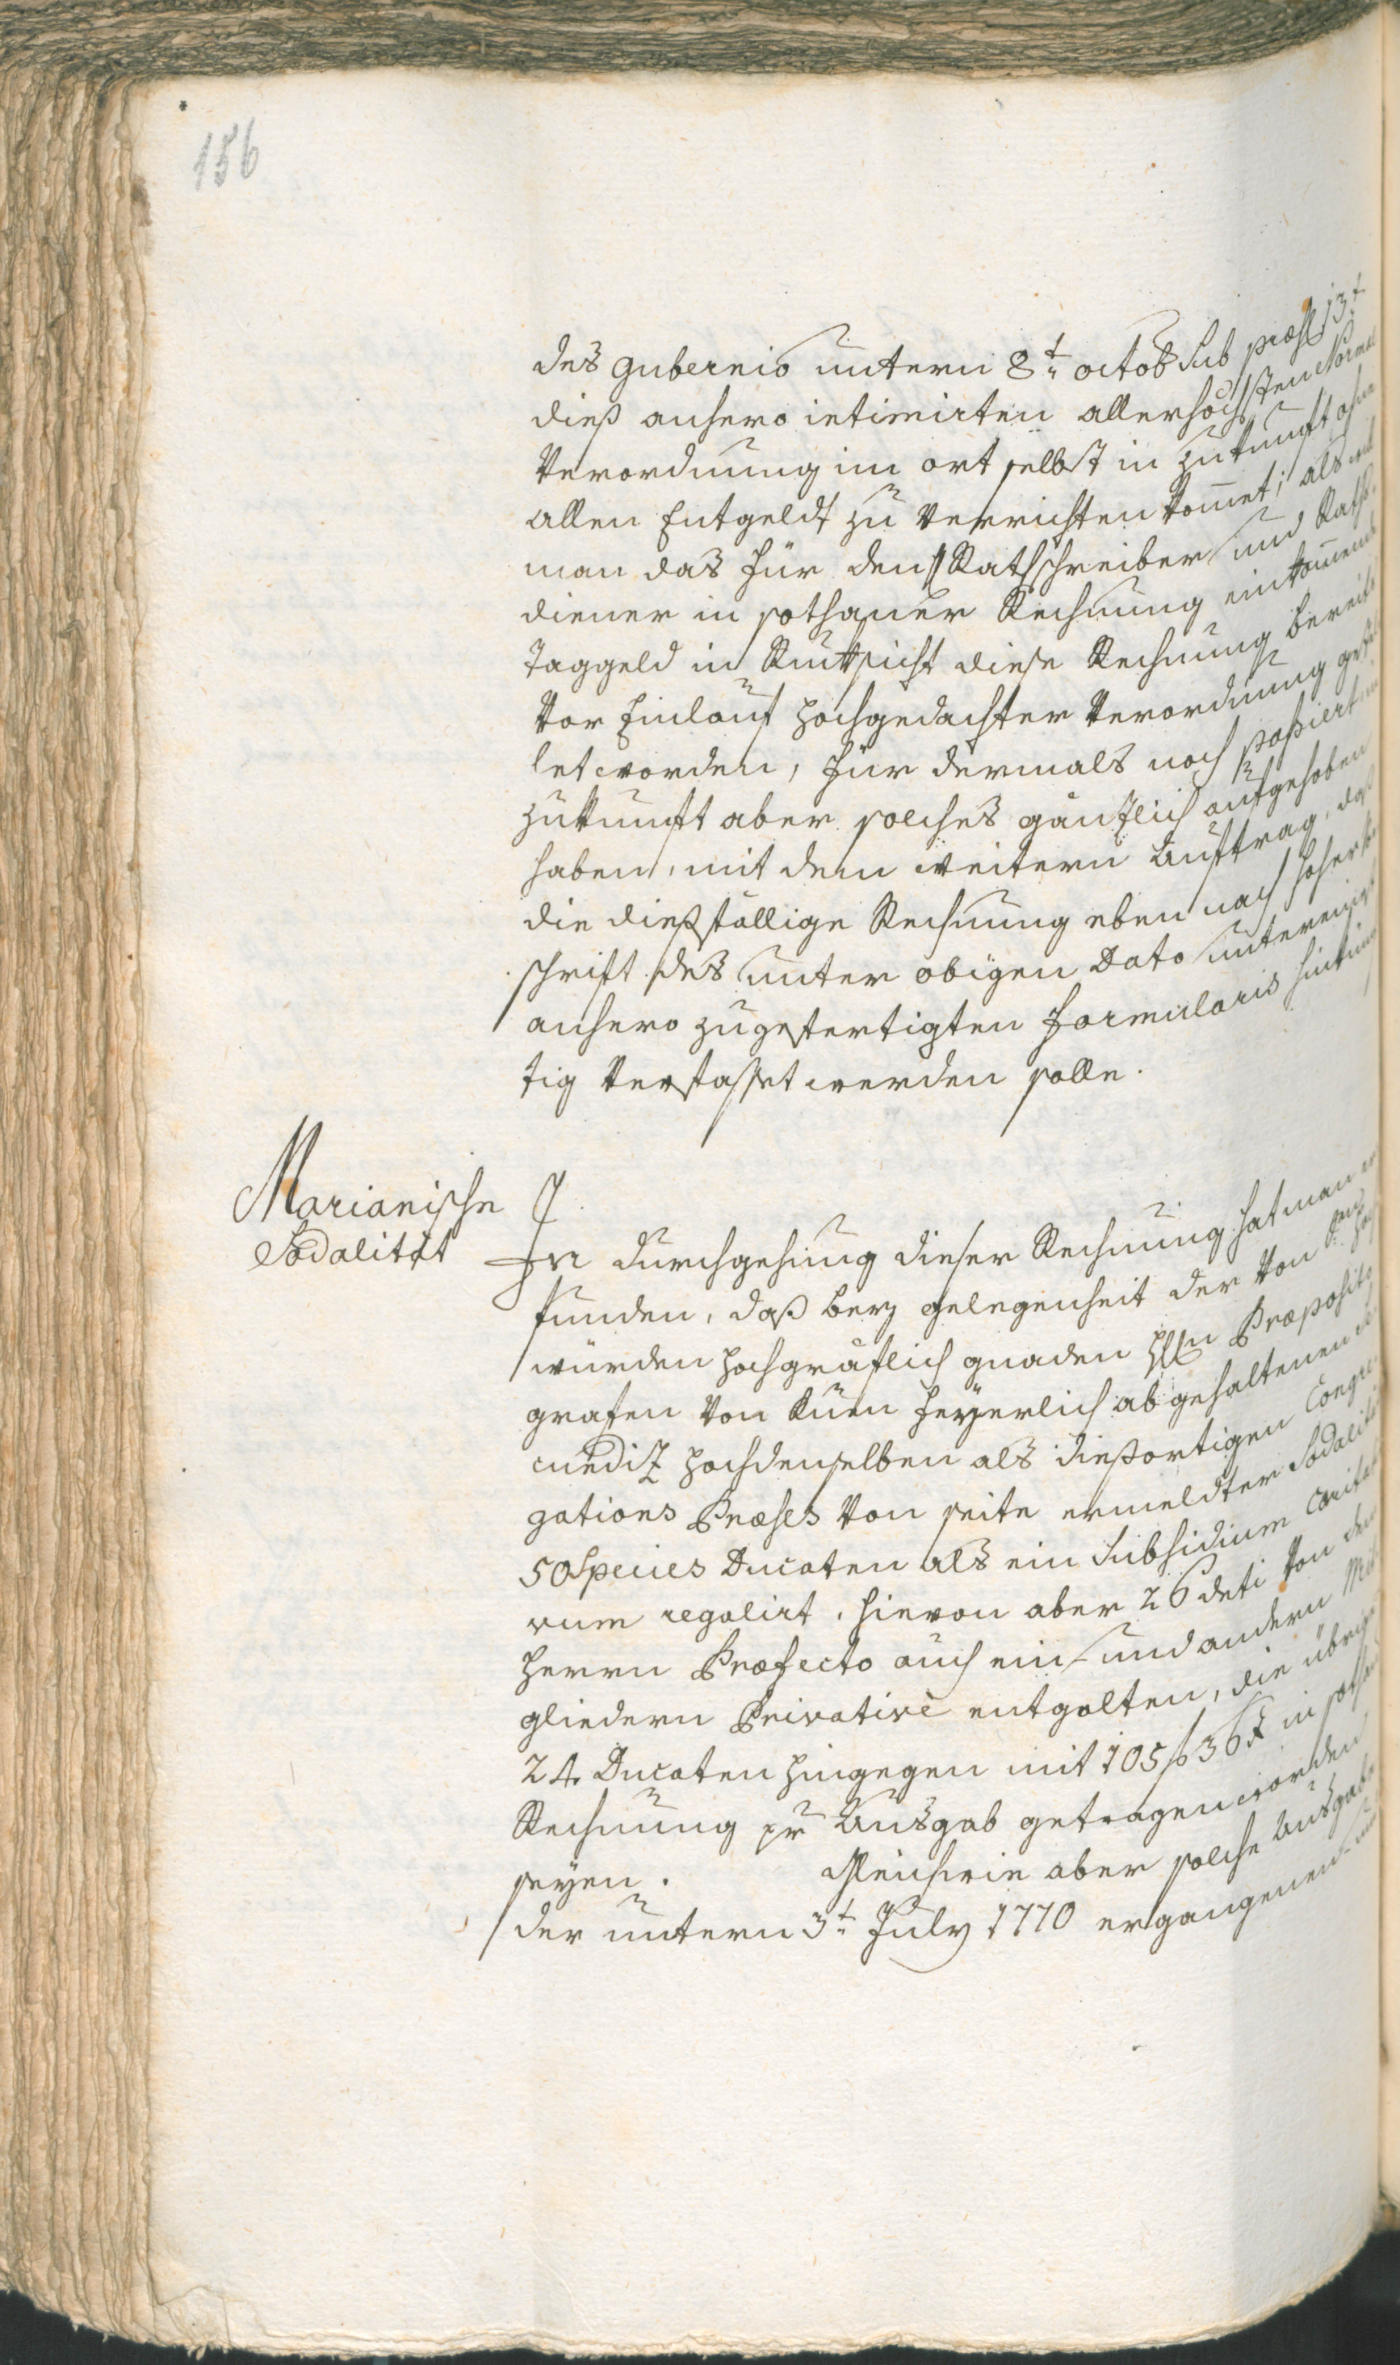 156
des Gubernio unterm 8t octob sub præst 13t
dieß anhero intimirten allerhöchsten Normal
Verordnung im ort selbst in zukunft ohne
allen Entgeldt zu verrichten kom̄et; als will
man das für den Rathschreiber und Raths
diener in sothaner Rechnung einkom̄ende
Taggeld in Ruksicht diese Rechnung bereits
vor Einlauf hochgedachter Verordnung
let worden, für dermals noch passiert
zukunft aber solches gänzlich aufgehoben
haben, mit dem weitern Auftrag, daß
die dießfällige Rechnung eben nach
schrift des unter obigen Dato untereinst
anhero zugefertigten Formularis hinkünf
tig verfasset werden solle.
Marianische
Sodalitet
In durchgehung dieser Rechnung hat man er
funden, daß bey gelegenheit der von
würden hochgräflich gnaden Præposito
grafen von Küen feyerlich abgehaltenen
cundiz hochdenselben als dießortigen Congre
gations Præses von seite ermeldter Sodalitet
50 Species Ducaten als ein Subsidium carita
rum regalirt, hievon aber 26 deti von dem
Herrn Præfecto auch ein- und andern Mit
gliedern Privativè entgolten, die übrige
24 Ducaten hingegen mit 105 f 36 x in sothan
Rechnung pr Ausgab getragen worden
seyen. Gleichwie aber solche Ausgab
der unterm 3t July 1770 ergangenen